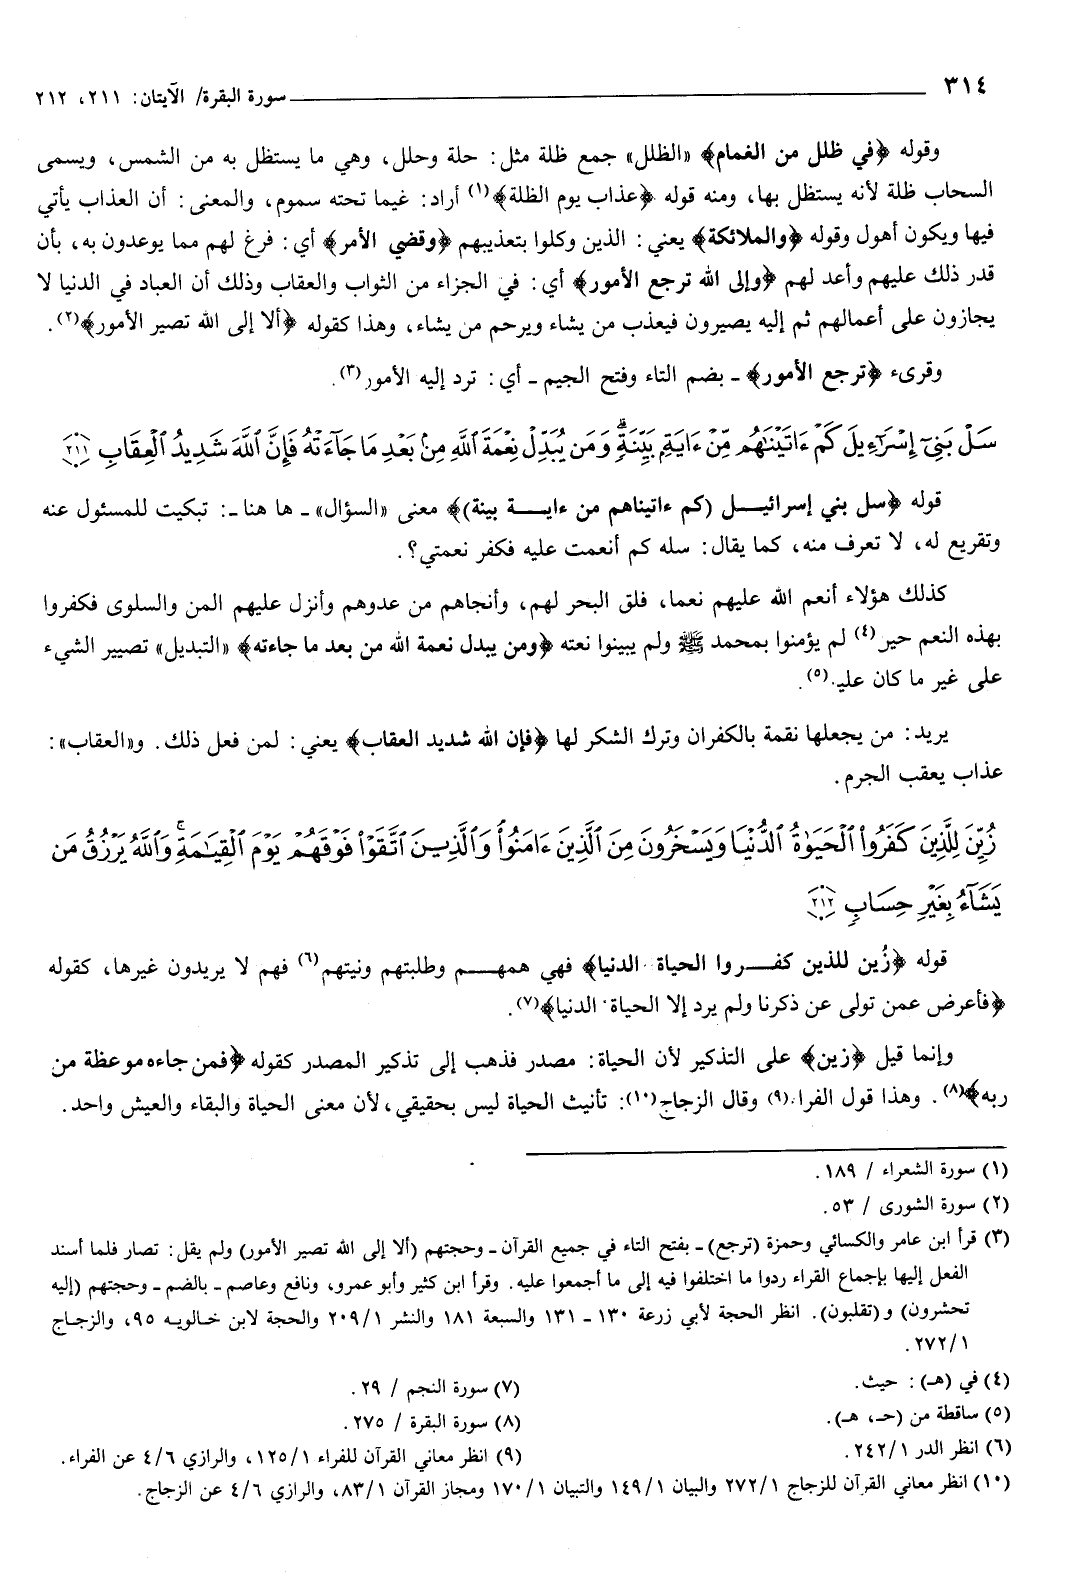 ٣١٤ سورة البقرة/ الآيتان: ٢١١، ٢١٢
وقوله ﴿في ظلل من الغمام﴾ «الظلل» جمع ظلة مثل: حلة وحلل، وهي ما يستظل به من الشمس، ويسمى
السحاب ظلة لأنه يستظل بها، ومنه قوله ﴿عذاب يوم الظلة﴾(١) أراد: غيما تحته سموم، والمعنى: أن العذاب يأتي
فيها ويكون أهول وقوله ﴿والملائكة﴾ يعني: الذين وكلوا بتعذيبهم ﴿وقضي الأمر﴾ أي: فرغ لهم مما يوعدون به، بأن
قدر ذلك عليهم وأعد لهم ﴿وإلى الله ترجع الأمور﴾ أي: في الجزاء من الثواب والعقاب وذلك أن العباد في الدنيا لا
يجازون على أعمالهم ثم إليه يصيرون فيعذب من يشاء ويرحم من يشاء، وهذا كقوله ﴿ألا إلى الله تصير الأمور﴾(٢).
وقرىء ﴿ترجع الأمور﴾ ـ بضم التاء وفتح الجيم ـ أي: ترد إليه الأمور(٣).
سَلْ بَنِيٓ إِسْرَٰٓءِيلَ كَمْ ءَاتَيْنَٰهُم مِّنْ ءَايَةِۭ بَيِّنَةٍۗ وَمَن يُبَدِّلْ نِعْمَةَ ٱللَّهِ مِنۢ بَعْدِ مَا جَآءَتْهُ فَإِنَّ ٱللَّهَ شَدِيدُ ٱلْعِقَابِ ٢١١
قوله ﴿سل بني إسرائيـل (كم ءاتيناهم من ءايـة بينة)﴾ معنى «السؤال» ـ ها هنا ـ: تبكيت للمسئول عنه
وتقريع له، لا تعرف منه، كما يقال: سله كم أنعمت عليه فكفر نعمتي؟.
كذلك هؤلاء أنعم الله عليهم نعما، فلق البحر لهم، وأنجاهم من عدوهم وأنزل عليهم المن والسلوى فكفروا
بهذه النعم حير(٤) لم يؤمنوا بمحمد ﷺ ولم يبينوا نعته ﴿ومن يبدل نعمة الله من بعد ما جاءته﴾ «التبديل» تصيير الشيء
على غير ما كان عليه(٥).
يريد: من يجعلها نقمة بالكفران وترك الشكر لها ﴿فإن الله شديد العقاب﴾ يعني: لمن فعل ذلك. و«العقاب»:
عذاب يعقب الجرم.
زُيِّنَ لِلَّذِينَ كَفَرُوا۟ ٱلْحَيَوٰةُ ٱلدُّنْيَا وَيَسْخَرُونَ مِنَ ٱلَّذِينَ ءَامَنُوا۟ۘ وَٱلَّذِينَ ٱتَّقَوْا۟ فَوْقَهُمْ يَوْمَ ٱلْقِيَٰمَةِۗ وَٱللَّهُ يَرْزُقُ مَن
يَشَآءُ بِغَيْرِ حِسَابٍ ٢١٢
قوله ﴿زُين للذين كفـروا الحياة الدنيا﴾ فهي همهـم وطلبتهم ونيتهم(٦) فهم لا يريدون غيرها، كقوله
﴿فأعرض عمن تولى عن ذكرنا ولم يرد إلا الحياة الدنيا﴾(٧).
وإنما قيل ﴿زين﴾ على التذكير لأن الحياة: مصدر فذهب إلى تذكير المصدر كقوله ﴿فمن جاءه موعظة من
ربه﴾(٨). وهذا قول الفراء(٩) وقال الزجاج(١٠): تأنيث الحياة ليس بحقيقي، لأن معنى الحياة والبقاء والعيش واحد.
(١) سورة الشعراء / ١٨٩.
(٢) سورة الشورى / ٥٣.
(٣) قرأ ابن عامر والكسائي وحمزة (ترجع) ـ بفتح التاء في جميع القرآن ـ وحجتهم (ألا إلى الله تصير الأمور) ولم يقل: تصار فلما أسند
الفعل إليها بإجماع القراء ردوا ما اختلفوا فيه إلى ما أجمعوا عليه. وقرأ ابن كثير وأبو عمرو، ونافع وعاصم ـ بالضم ـ وحجتهم (إليه
تحشرون) و(تقلبون). انظر الحجة لأبي زرعة ١٣٠ ـ ١٣١ والسبعة ١٨١ والنشر ٢٠٩/١ والحجة لابن خالويه ٩٥، والزجاج
٢٧٢/١.
(٤) في (هـ): حيث.
(٥) ساقطة من (حـ، هـ).
(٦) انظر الدر ٢٤٢/١.
(٧) سورة النجم / ٢٩.
(٨) سورة البقرة / ٢٧٥.
(٩) انظر معاني القرآن للفراء ١٢٥/١، والرازي ٤/٦ عن الفراء.
(١٠) انظر معاني القرآن للزجاج ٢٧٢/١ والبيان ١٤٩/١ والتبيان ١٧٠/١ ومجاز القرآن ٨٣/١، والرازي ٤/٦ عن الزجاج.